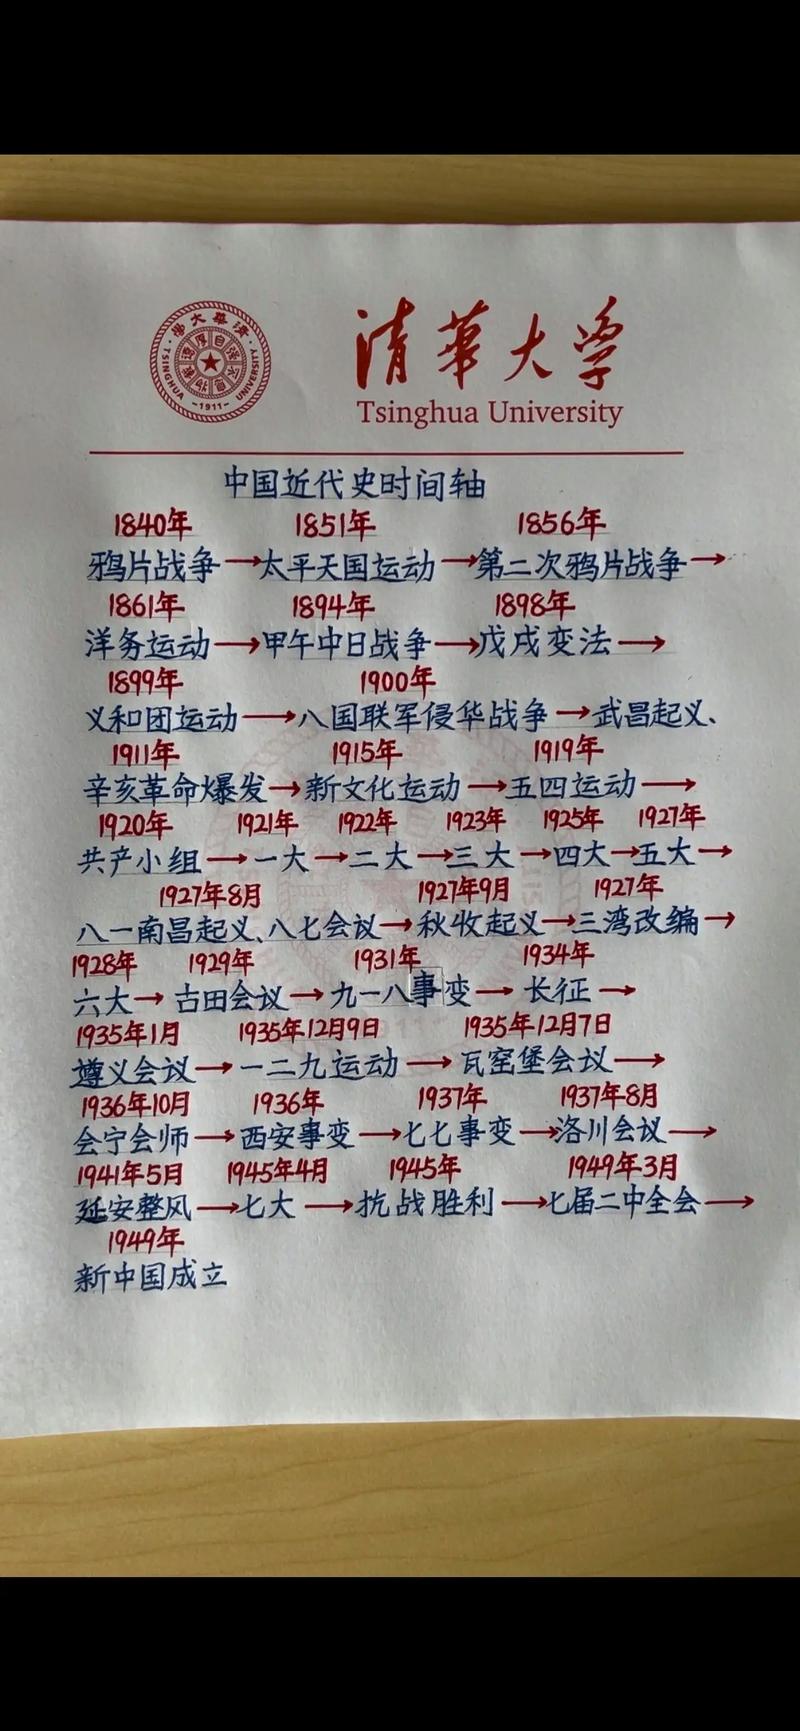 清華大学
Tsinghua University
· TSINGHUA UNIVERSITY ·
-1911-
中国近代史时间轴
1840年 1851年 1856年
鸦片战争→太平天国运动→第二次鸦片战争→
1861年 1894年 1898年
洋务运动→甲午中日战争→戊戌变法→
1899年 1900年
义和团运动→八国联军侵华战争→武昌起义、
1911年 1915年 1919年
辛亥革命爆发→新文化运动→五四运动→
1920年 1921年 1922年 1923年 1925年 1927年
共产小组→一大→二大→三大→四大→五大→
1927年8月 1927年9月 1927年
八一南昌起义、八七会议→秋收起义→三湾改编→
1928年 1929年 1931年 1934年
六大→古田会议→九一八事变→长征→
1935年1月 1935年12月9日 1935年12月7日
遵义会议→一二九运动→瓦窑堡会议→
1936年10月 1936年 1937年 1937年8月
会宁会师→西安事变→七七事变→洛川会议→
1941年5月 1945年4月 1945年 1949年3月
延安整风→七大→抗战胜利→七届二中全会→
1949年
新中国成立